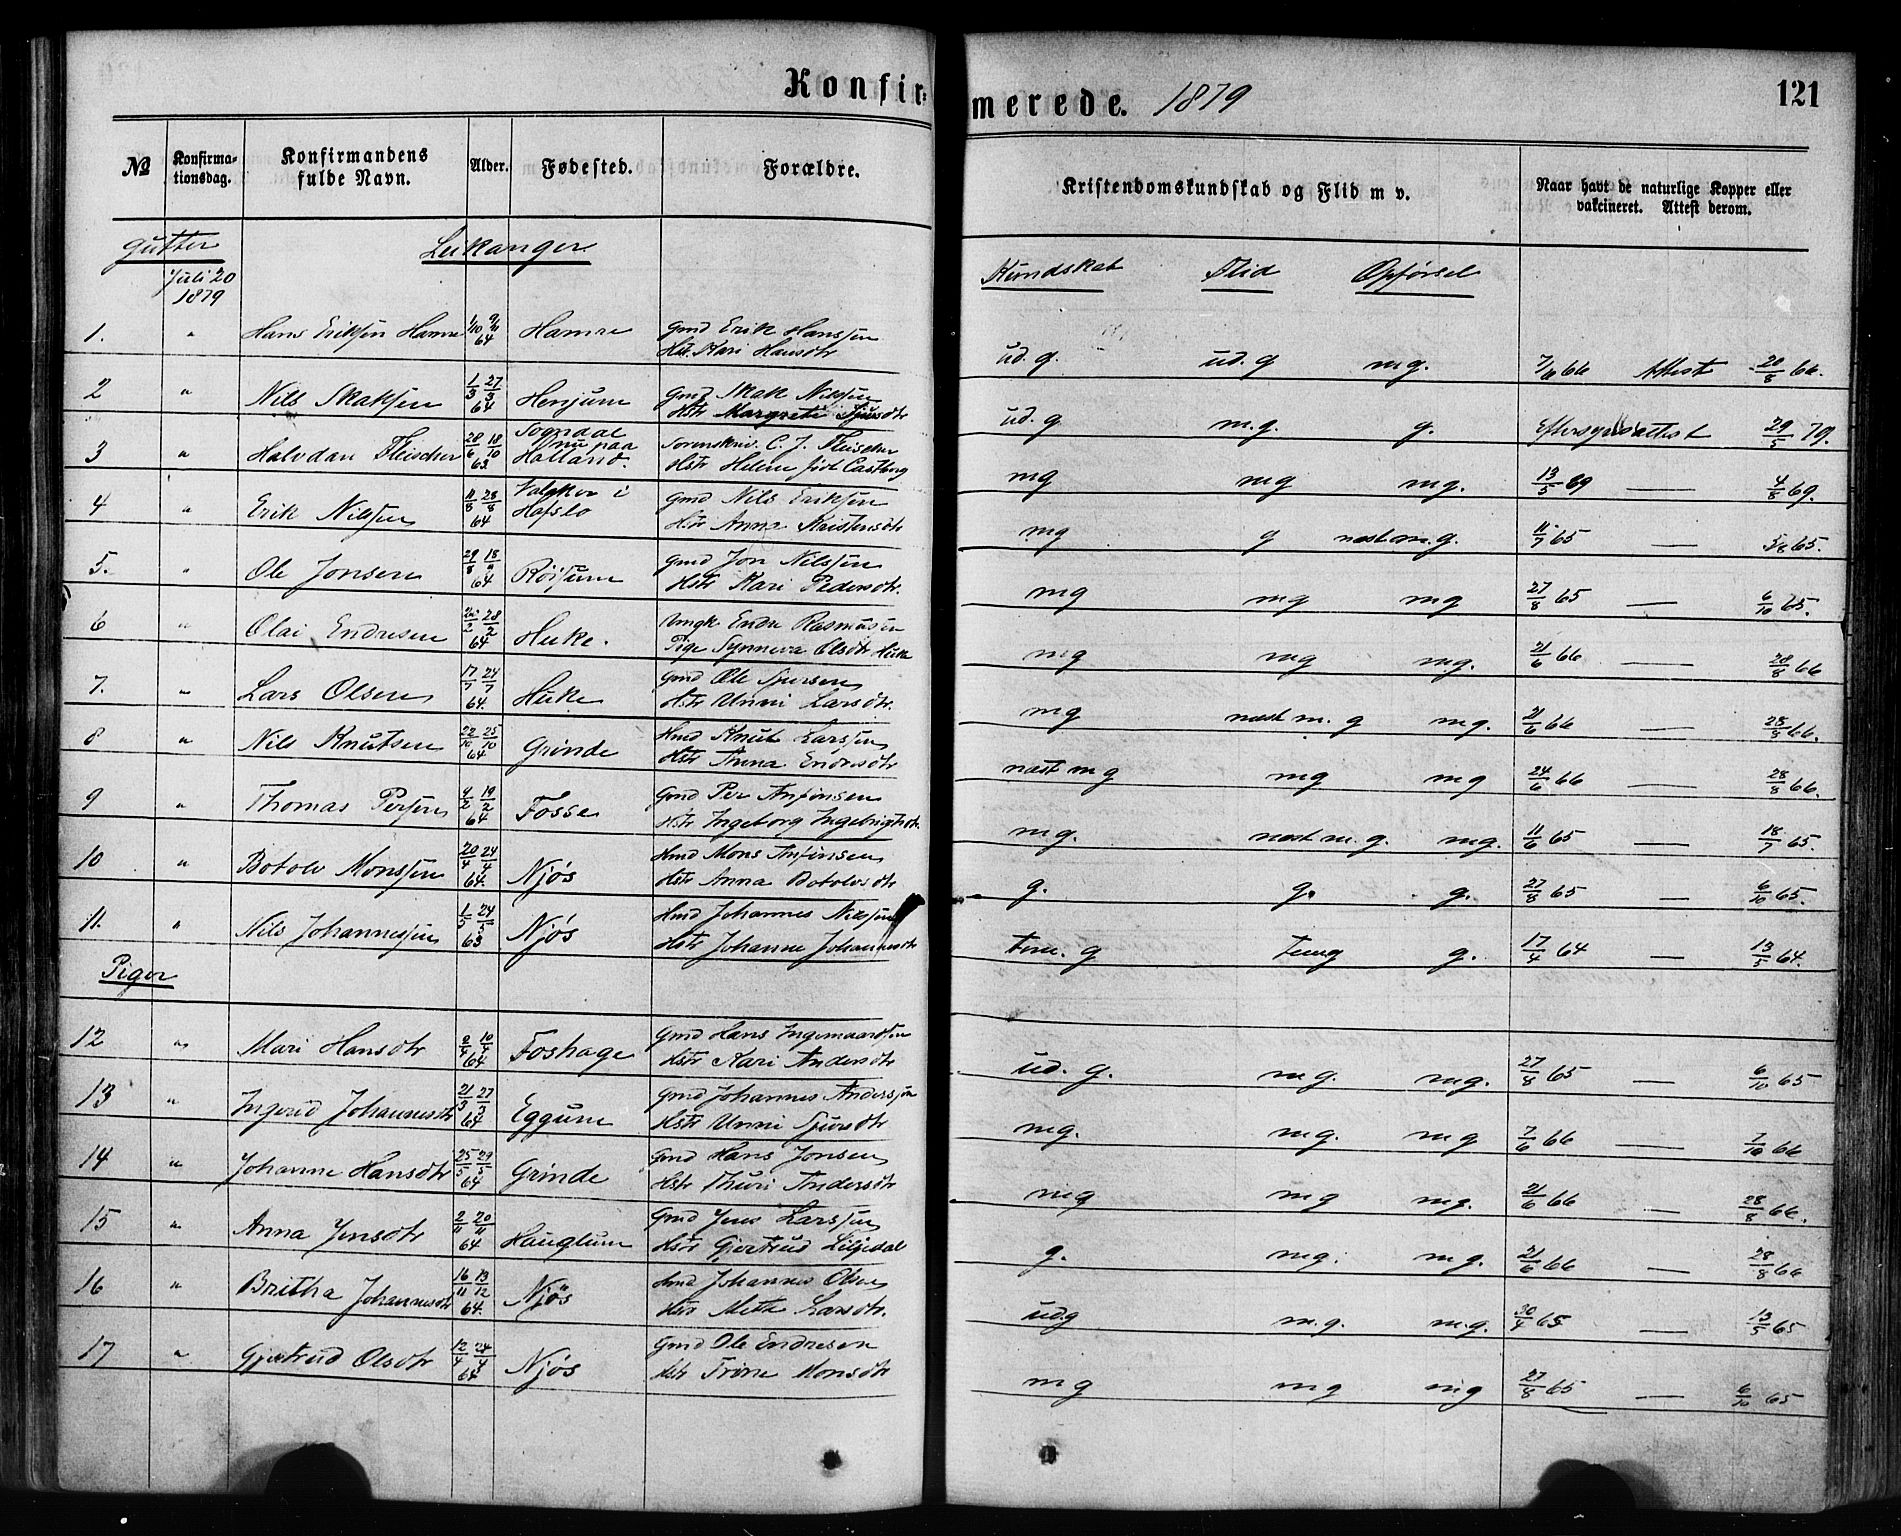 Konfirmerede. 1879 121
№ Konfirmationsdag. Konfirmandens fulde Navn. Alder. Fødested. Forældre. Kristendomskundskab og Flid m v. Naar havt de naturlige Kopper eller vakcineret. Attest derom.
Gutter Leikanger
Juli 20 1879 Kundskab Flid Opførsel
1. " Hans Eriksen Hamre 64 Hamre Gmd Erik Hanssen
Hstr. Kari Hansdtr ud. g. ud. g mg. 66 Attest 20/8 66.
2 " Nils Skaksen 1/3 27/3 64 Henjum Gmd Skak Nilssen
Hstr Margrete Sjursdtr ud. g. m.g. g. Eftersynsattest 29/5 79.
3 " Halvdan Fleischer 28/6 18/10 63. Sogndal nu paa Hatland. Sorenskriv. C. J. Fleischer
Hstr Helene født Castberg mg mg mg. 13/5 69 — 4/8 69.
4 " Erik Nilssen 11/8 28/8 64 i Hafslo Gmd Nils Eriksen
Hstr Anna Karstensdtr mg g næst m.g. 11/7 65 — 65.
5. " Ole Jonsen 29/8 18/ 64 Røisum Gmd Jon Nilssen
Hstr Kari Pedersdtr. mg mg mg 27/8 65 — 6/10 65.
6 " Olai Endresen 28/2 64 Huke. Ungk Endre Rasmussen
Pige Synneva Olsdtr Huke mg mg mg. 21/6 66 — 28/8 66
7. " Lars Olsen 17/7 24/7 64. Huke Gmd Ole Sjursen
Hstr Unni Larsdtr. mg næst m. g mg. 21/6 66 — 28/8 66.
8 " Nils Knutsen 22/10 25/10 64 Grinde Hmd Knut Larssen
Hstr Anna Endresdtr næst mg mg mg 24/6 66 — 28/8 66.
9 " Thomas Persen 4/2 19/2 64 Fosse Gmd Per Anfinsen
Hstr Ingeborg Ingebrigtsdtr. mg. næst m.g. mg. 11/6 65 — 18/7 65.
10 " Botolv Monssen 20/4 24/4 64. Njøs Hmd Mons Anfinsen
Hstr Anna Botolvsdtr g. g. g. 27/8 65 — 6/10 65.
11. " Nils Johannessen 1/5 24/5 63 Njøs Hmd Johannes Nilssen
Hstr Johanne Johannesdtr tem. g temg g. 17/4 64 — 13/5 64.
Piger
12 " Mari Hansdtr 2/4 10/4 64 Foshage Gmd Hans Ingemaardsen
Hstr Kari Andersdtr ud. g. mg. mg. 27/8 65 — 6/10 65
13 " Ingerid Johannesdtr 21/3 27/3 64 Eggum Gmd Johannes Anderssen
Hstr Unni Sjursdtr mg. mg. mg 7/6 66 — 7/10 66
14 " Johanne Hansdtr 25/5 29/5 64 Grinde Gmd Hans Jonsen
Hstr Thuri Andersdtr mg mg mg. 21/6 66 — 28/8 66.
15 " Anna Jensdtr 2/11 20/11 64 Hauglum Gmd Jens Larssen
Hstr Gjertrud Liljedal g. mg. mg. 21/6 66 — 28/8 66
16 " Britha Johannesdtr 16/11 13/12 64. Njøs Hmd Johannes Olsen
Hstr Mette Larsdtr. udg m.g. m.g. 30/4 65 — 13/5 65
17 " Gjertrud Olsdtr 12/4 24/4 64 Njøs Gmd Ole Endresen
Hstr Trine Monsdtr mg mg mg 27/8 65 — 6/10 65